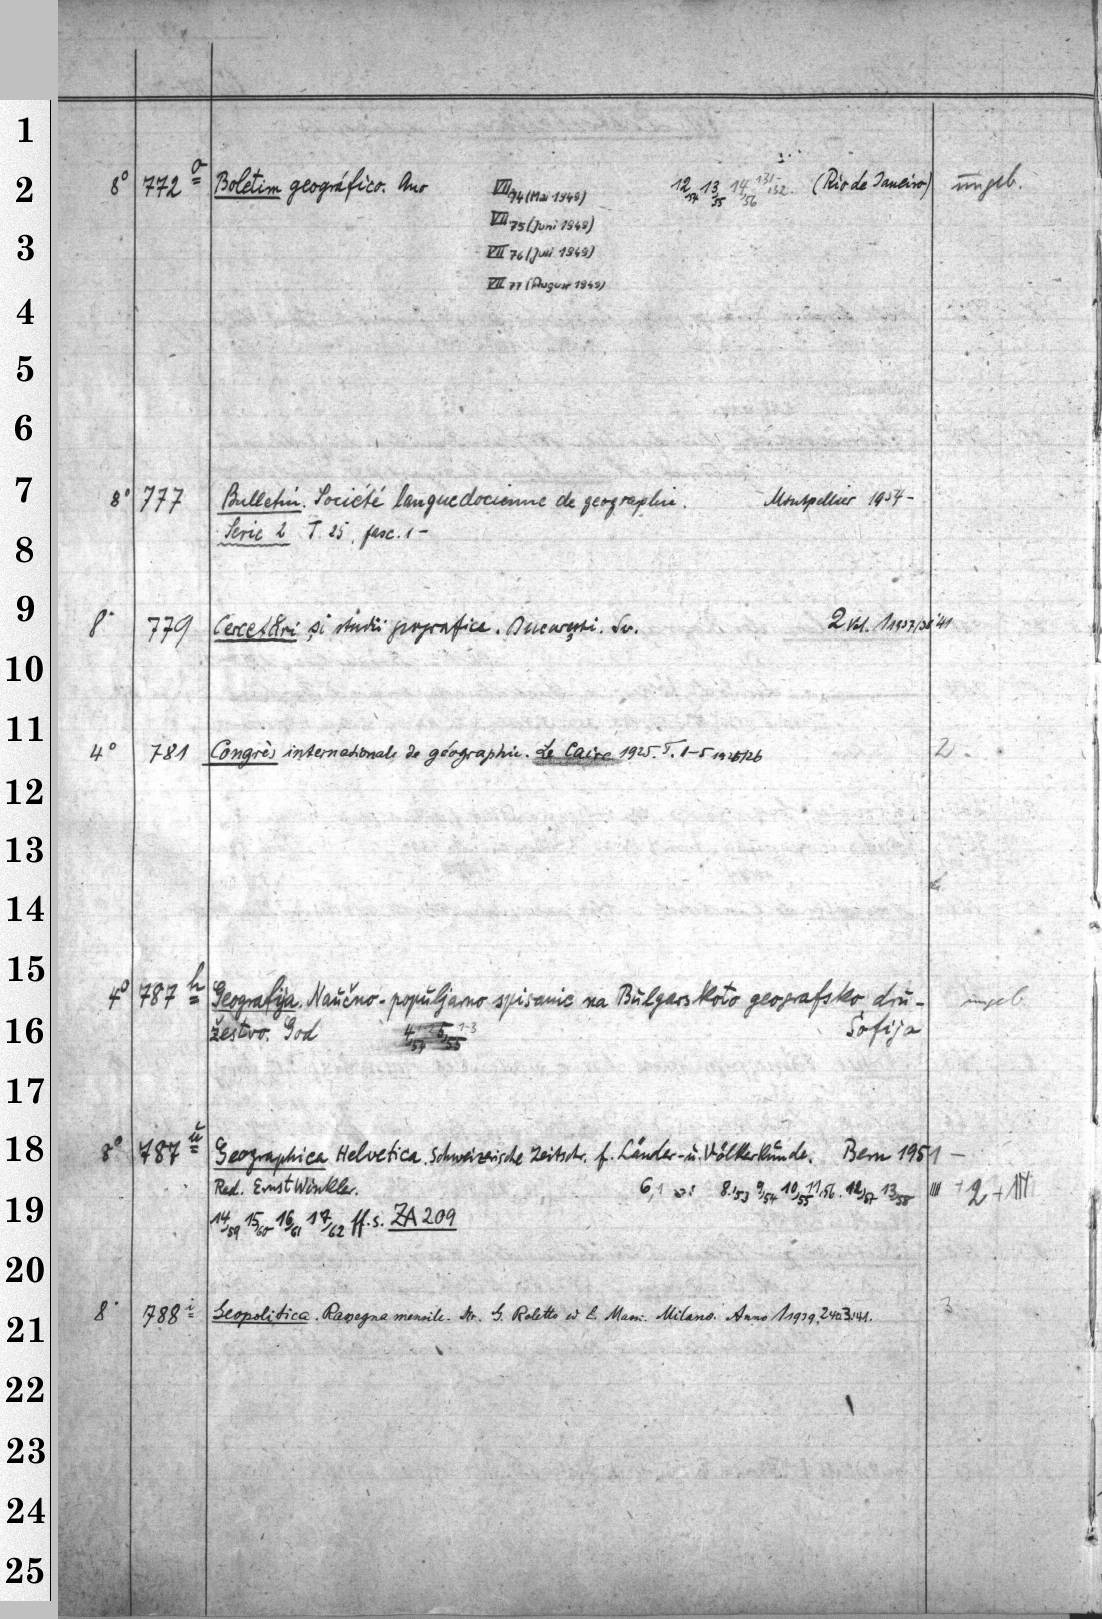 1
2
3
4
5
6
7
8
9
10
11
12
13
14
15
16
17
18
19
20
21
22
23
24
25
8° 772 a Boletim geográfico. Ano VII 74 (Mai 1949) 12/54 13/55 14/56 131-132 (Rio de Janeiro) ungeb.
VII 75 (Juni 1949)
VII 76 (Juli 1949)
VII 77 (August 1949)
8° 777 Bulletin. Société languedocienne de geographie. Montpellier 1954-
Serie 2 T. 25, fasc. 1-
8° 779 Cercetări şi studii geografice. Bucureşti. Ser. 2 Vol. 1 1937/38 '41
4° 781 Congrès internationale de géographie. Le Caire 1925. T. 1-5 1925/26 2
4° 787 h Geografija. Naučno-populjarno spisanie na Bŭlgarskoto geografsko dru- ungeb
žestvo. God 4/54 5/55 1-3 Sofija
8° 787 u Geographica Helvetica. Schweizerische Zeitschr. f. Länder- u. Völkerkunde. Bern 1951 -
Red. Ernst Winkler. 6,1 8/53 9/54 10/55 11/56. 12/57 13/58 + 2 +
14/59 15/60 16/61 17/62 ff. s. ZA 209
8° 788 i Geopolitica. Rassegna mensile. Dir. G. Roletto ed E. Massi. Milano. Anno 1 1939. 2 40. 3 '41. 3